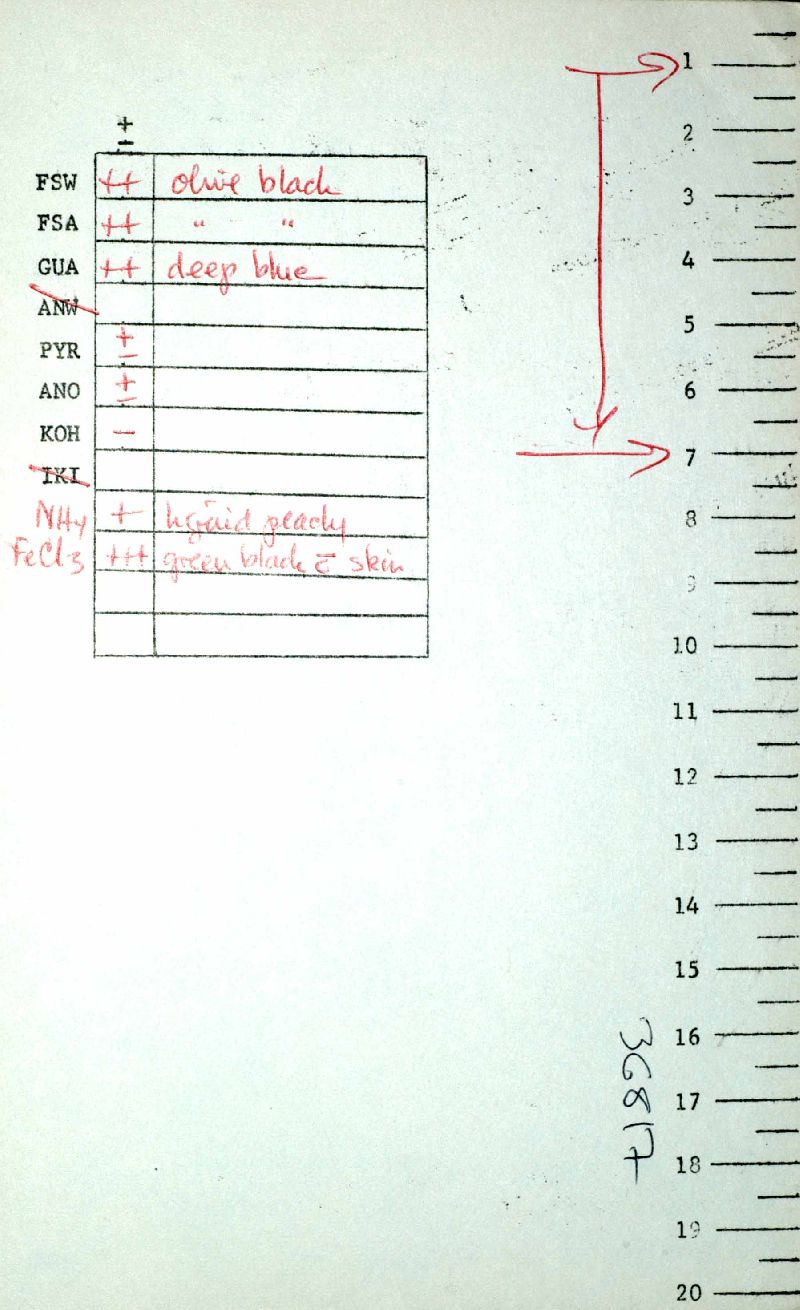 ±
FSW ++ olive black
FSA ++ " "
GUA ++ deep blue
ANW
PYR ±
ANO ±
KOH -
IKI
NH4 +
FeCl3 +++ green black c̄ skin
1
2
3
4
5
6
7
8
9
10
11
12
13
14
15
16
17
18
19
20
36817